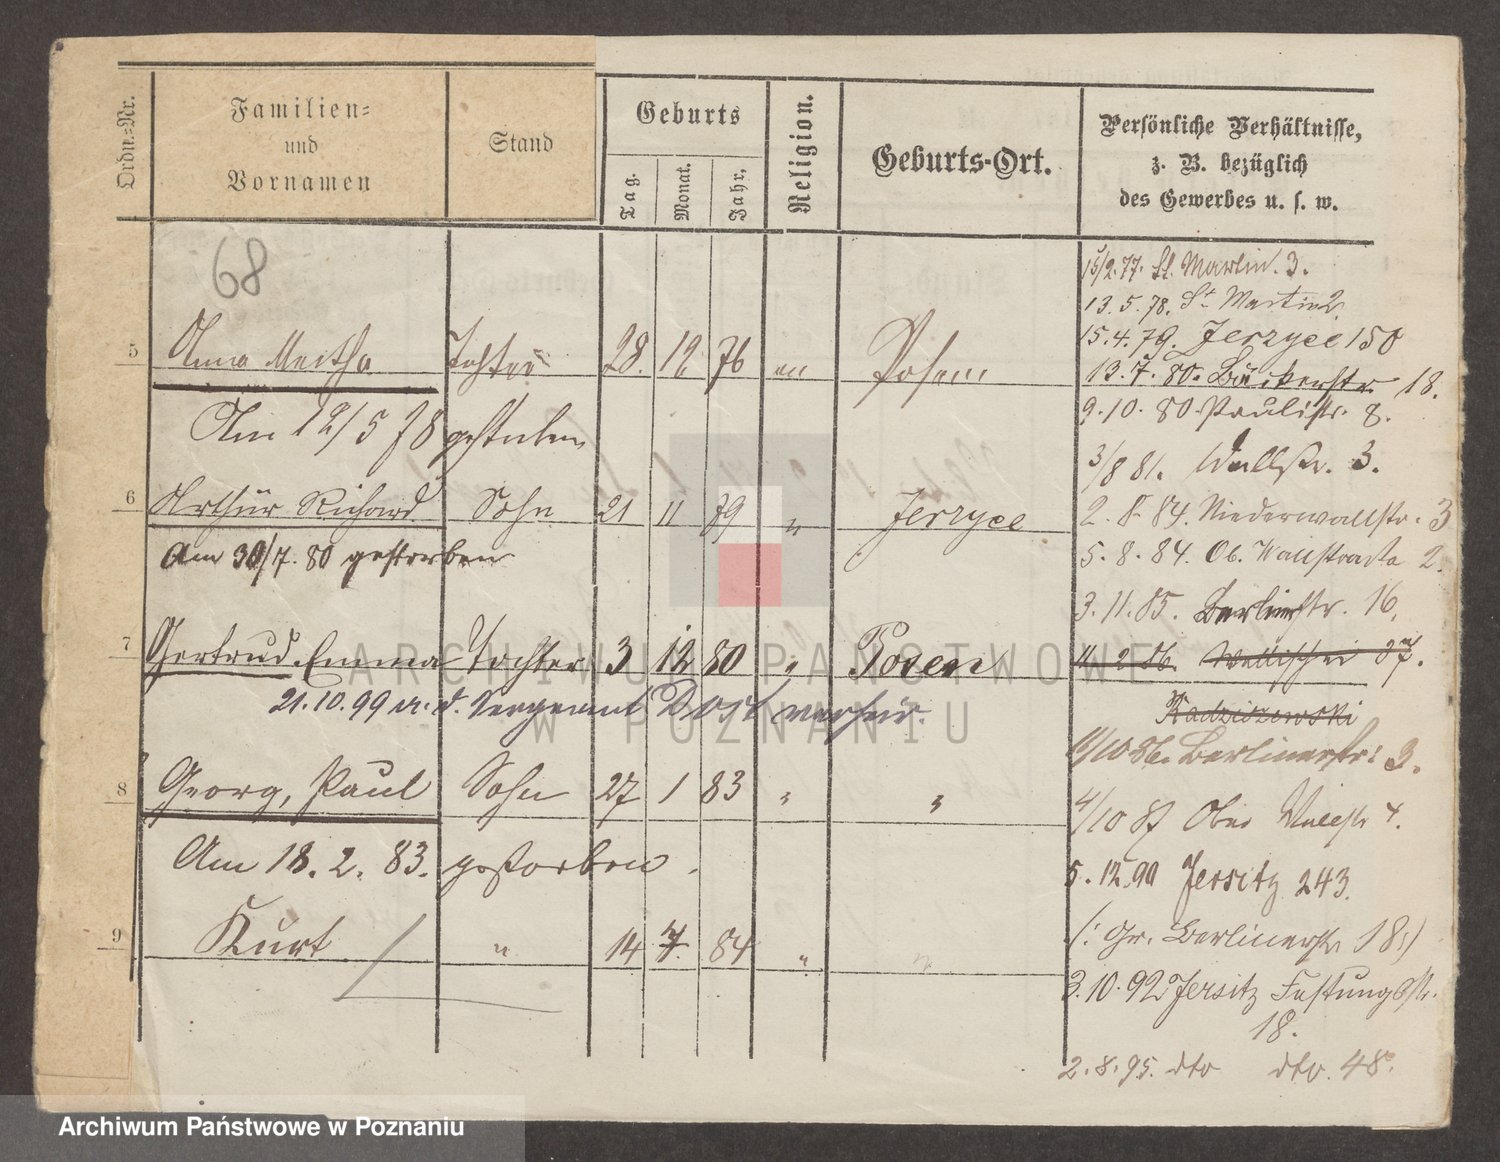 Ordn.-Nr.
Familien-
und
Vornamen
Stand
Geburts
Tag.
Monat.
Jahr.
Religion.
Geburts-Ort.
Persönliche Verhältnisse,
z. B. bezüglich
des Gewerbes u. s. w.
68
5 Anna Martha Tochter 28. 12 76 Posen
Am 12/5 78 gestorben
6 Arthür Richard Sohn 21 11 79 " Jerzyce
Am 30/7. 80 gestorben
7 Gertrud Emma Tochter 3 12 80 " Posen
21.10.99 m. d. Sergeant Dost verheir.
8 Georg, Paul Sohn 27 1 83 " "
Am 18. 2. 83. gestorben.
9 Kurt " 14 7. 84 " "
15/2.77. St. Martin. 3.
13. 5. 78. St Martin 2.
15. 4. 79. Jerzyce 150
13. 7. 80. Bäckerstr. 18.
9. 10. 80 Paulistr. 8.
3/8 81. Wallstr. 3.
2. 8. 84. Niederwallstr. 3
5. 8. 84. Ob. Wallstraße 2.
3. 11. 85. Berlinerstr. 16.
11. 2 86. Wallischei 87.
Radziszewski
11/10 86. Berlinerstr. 3.
4/10 87 Ober Wallstr 4.
5. 12. 90 Jersitz 243.
(: Gr. Berlinerstr. 18:)
3. 10. 92 Jersitz Festungsstr.
18.
2. 8. 95. dto dto. 48.
ARCHIWUM PAŃSTWOWE
W POZNANIU
Archiwum Państwowe w Poznaniu